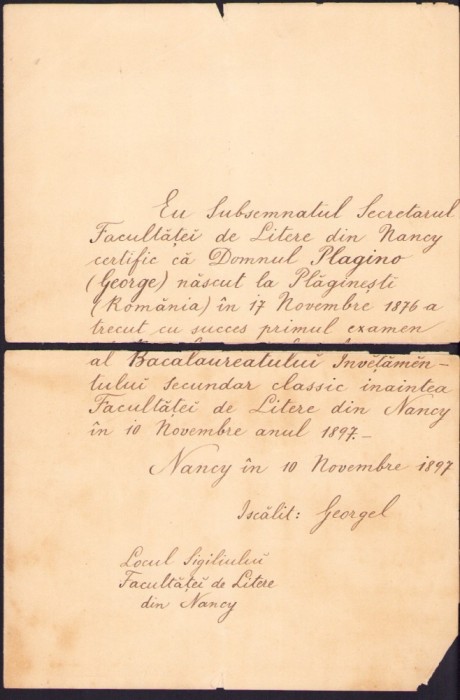 Eu Subsemnatul Secretarul
Facultăței de Litere din Nancy
certific că Domnul Plagino
(George) născut la Plăginești
(România) în 17 Novembre 1876 a
trecut cu succes primul examen
al Bacalaureatului Invețămĕn-
tului secundar classic inaintea
Facultăței de Litere din Nancy
în 10 Novembre anul 1897.-
Nancy în 10 Novembre 1897
Iscălit: Georgel
Locul Sigiliului
Facultăței de Litere
din Nancy